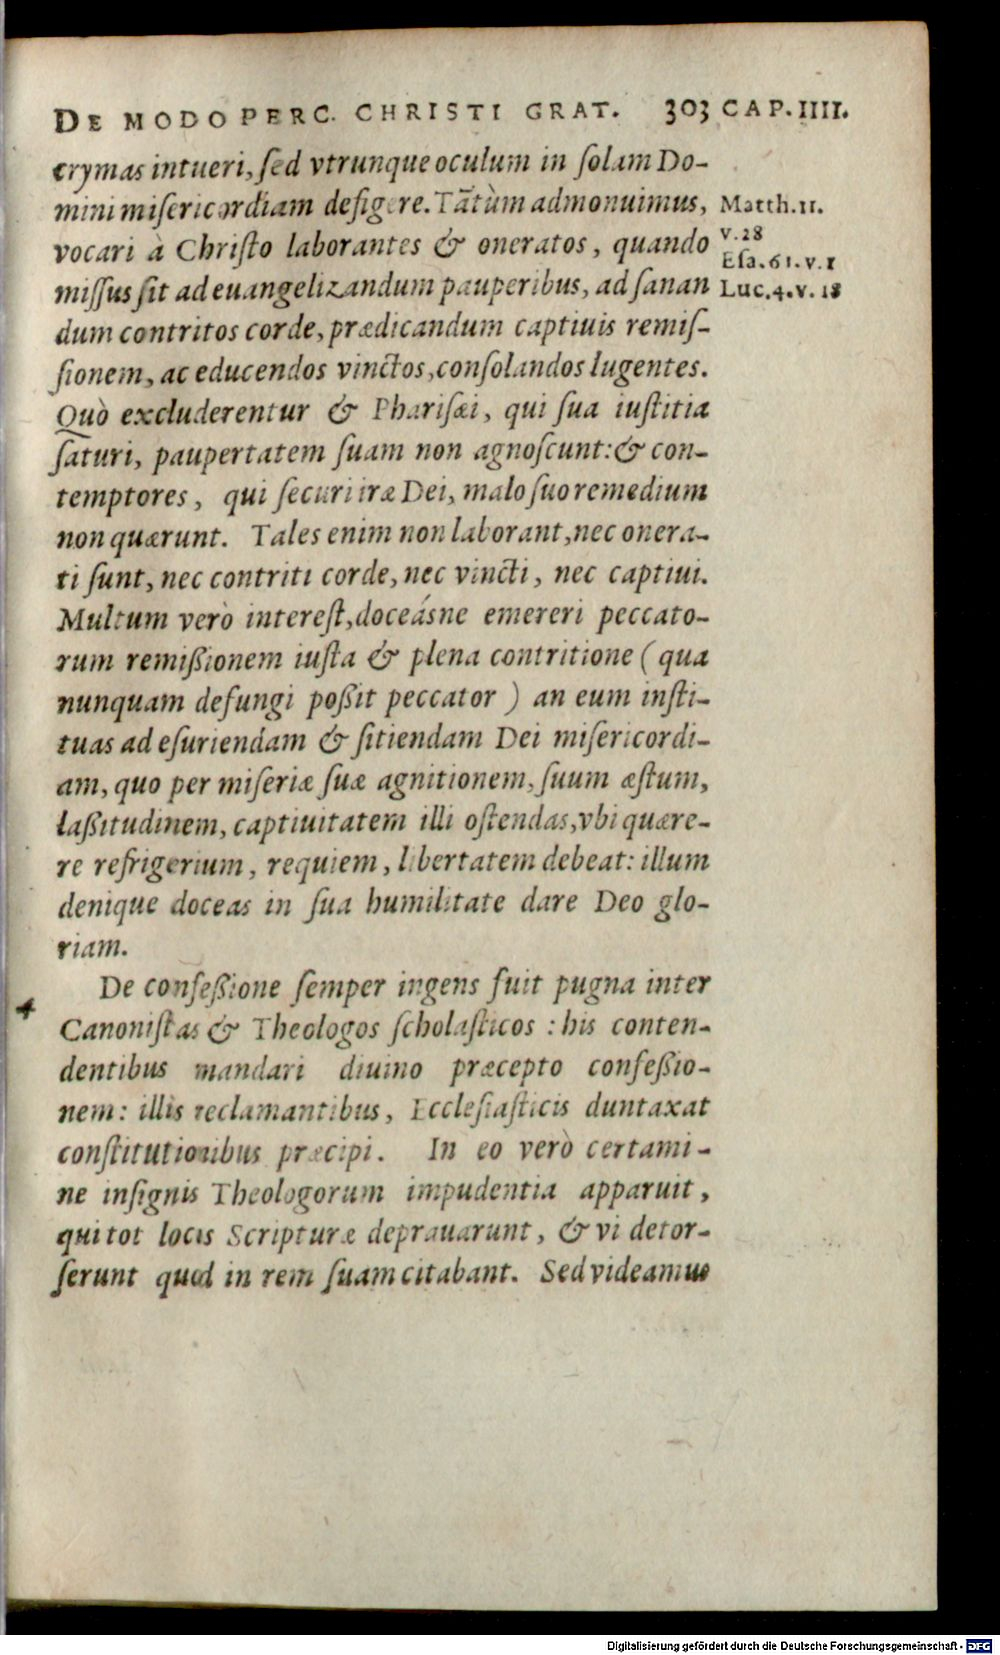 DE MODO PERC. CHRISTI GRAT. 303 CAP. IIII.
crymas intueri, ſed vtrunque oculum in ſolam Do-
mini miſericordiam defigere. Tātùm admonuimus,
Matth. 11.
v. 28
vocari à Chriſto laborantes & oneratos, quando
Eſa. 61. v. 1
miſſus ſit ad euangelizandum pauperibus, ad ſanan
Luc. 4. v. 18
dum contritos corde, prædicandum captiuis remiſ-
ſionem, ac educendos vinctos, conſolandos lugentes.
Quò excluderentur & Phariſæi, qui ſua iuſtitia
ſaturi, paupertatem ſuam non agnoſcunt: & con-
temptores, qui ſecuri iræ Dei, malo ſuo remedium
non quærunt. Tales enim non laborant, nec onera-
ti ſunt, nec contriti corde, nec vincti, nec captiui.
Multum verò intereſt, doceásne emereri peccato-
rum remißionem iuſta & plena contritione (qua
nunquam defungi poßit peccator) an eum inſti-
tuas ad eſuriendam & ſitiendam Dei miſericordi-
am, quo per miſeriæ ſuæ agnitionem, ſuum æſtum,
laßitudinem, captiuitatem illi oſtendas, vbi quære-
re refrigerium, requiem, libertatem debeat: illum
denique doceas in ſua humilitate dare Deo glo-
riam.
De confeßione ſemper ingens fuit pugna inter
4 Canoniſtas & Theologos ſcholaſticos: his conten-
dentibus mandari diuino præcepto confeßio-
nem: illis reclamantibus, Eccleſiaſticis duntaxat
conſtitutionibus præcipi. In eo verò certami-
ne inſignis Theologorum impudentia apparuit,
qui tot locis Scripturæ deprauarunt, & vi detor-
ſerunt quod in rem ſuam citabant. Sed videamus
Digitalisierung gefördert durch die Deutsche Forschungsgemeinschaft - DFG